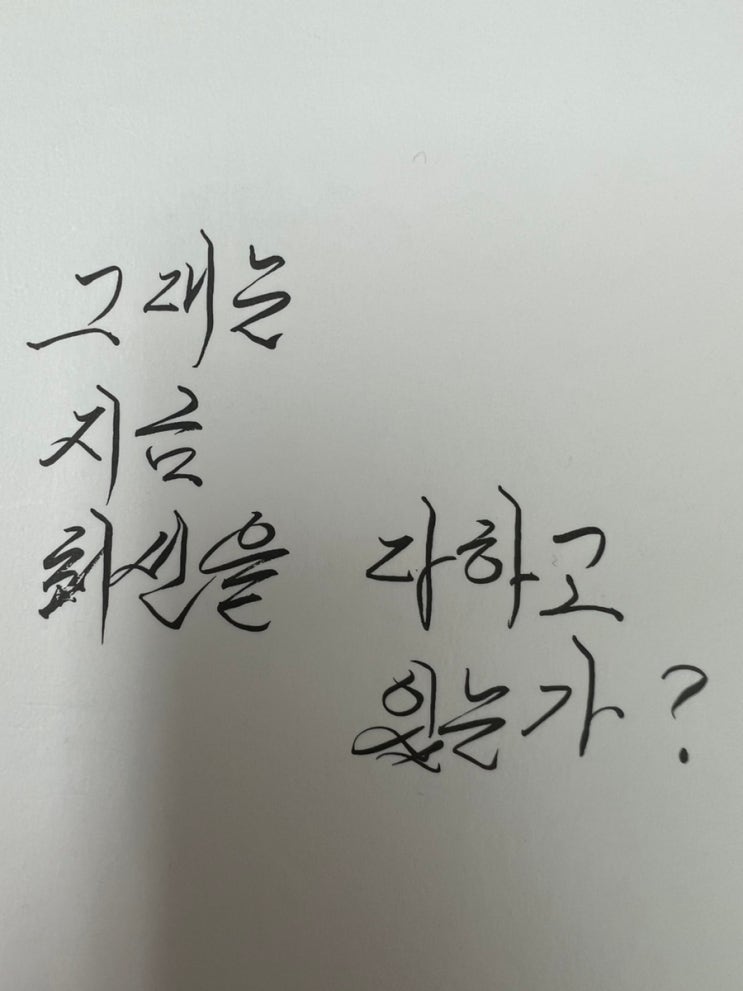 그대는
지금
최선을 다하고
있는가?